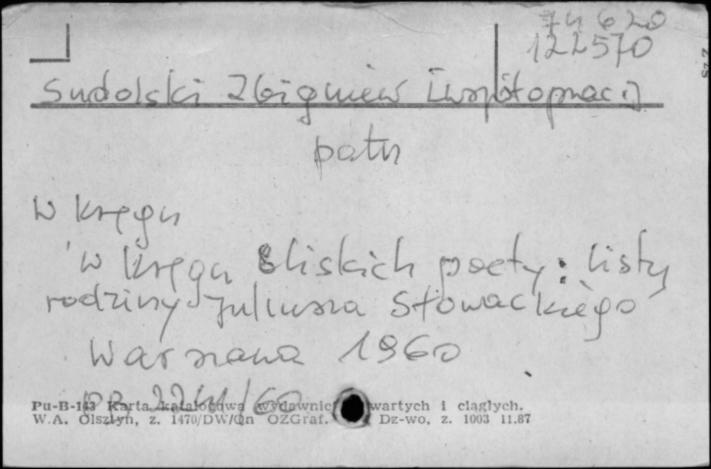 74 620
122570
Sudolski Zbigniew [współoprac.]
patrz
W kręgu
W kręgu bliskich poety: listy
rodziny Juliusza Słowackiego
Warszawa 1960
Pu-B-143 Karta katalogowa wydawnict wartych i ciągłych.
W.A. Olsztyn, z. 1470/DW/Qn OZGraf. Dz-wo, z. 1003 11.87